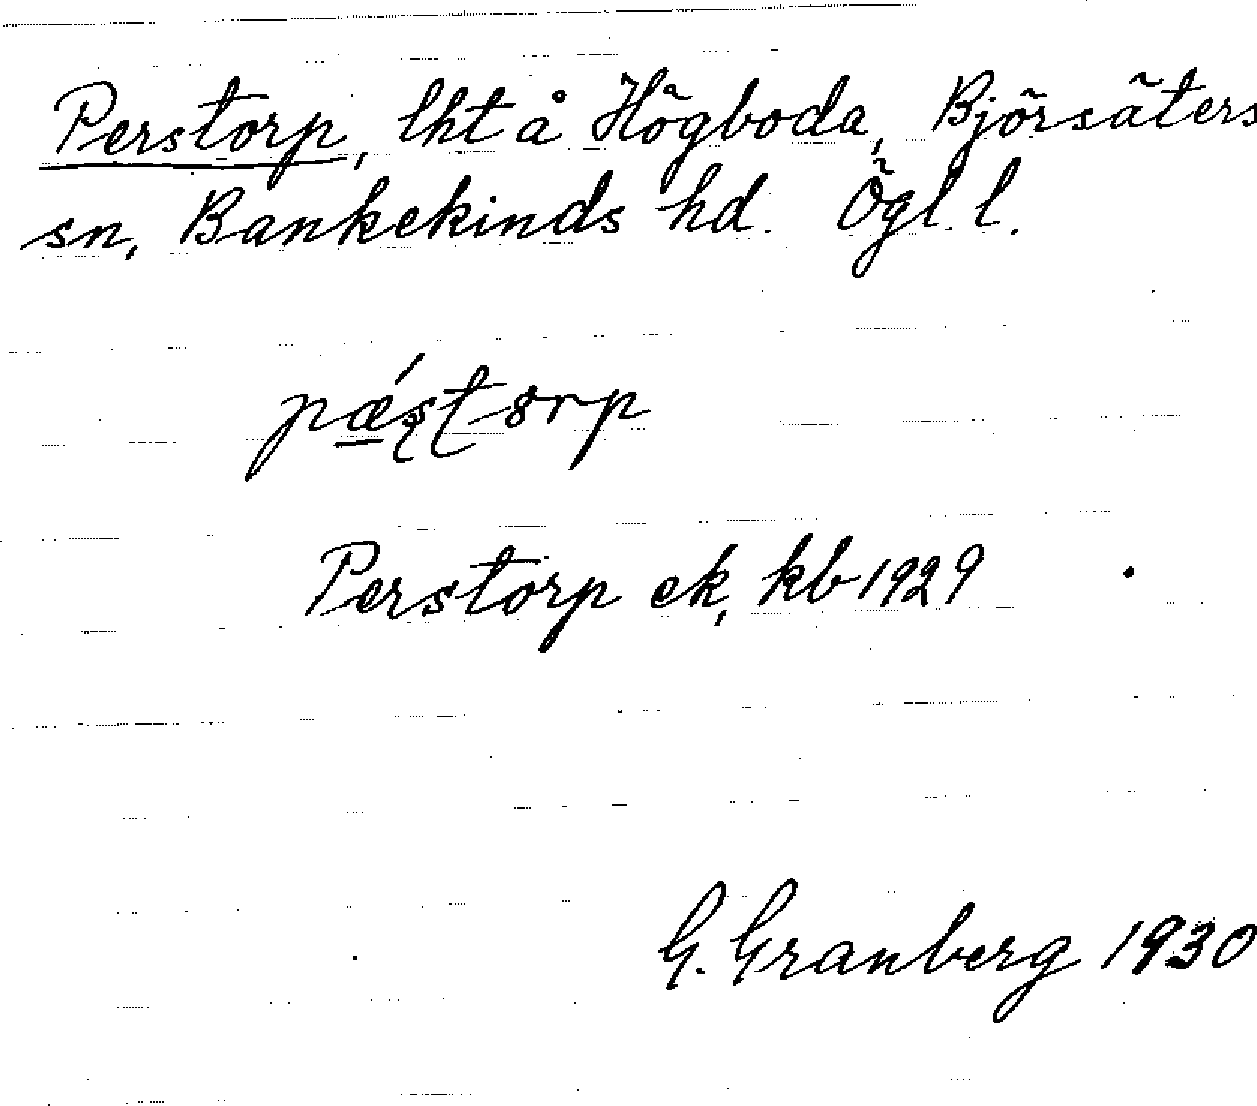 Perstorp, lht å Högboda, Björsäters
sn, Bankekinds hd. Ögl. l.
pǽʂʈ๐rp
Perstorp ek, kb 1929
G. Granberg 1930